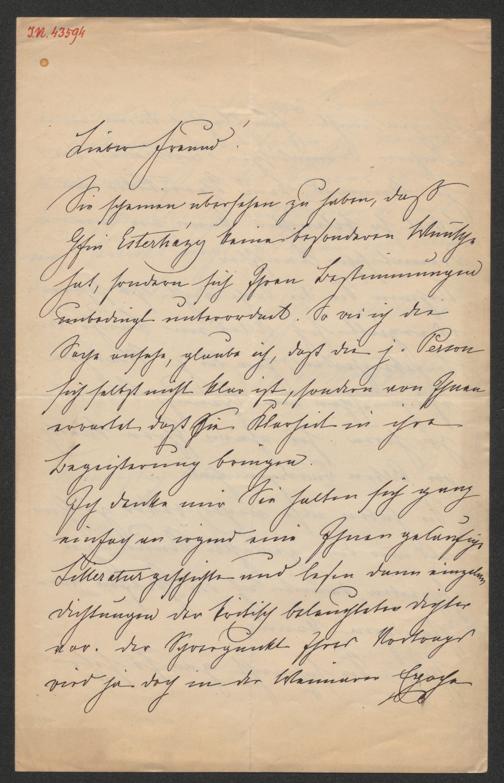 I.N. 43594
Lieber Freund!
Sie scheinen übersehen zu haben, daß
Gfin Esterházy keine besonderen Wünsche
hat, sondern sich Ihren Bestimmungen
unbedingt unterordnet. So wie ich die
Sache ansehe, glaube ich, daß die j. Person
sich selbst nicht klar ist, sondern von Ihnen
erwartet daß Sie Klarheit in ihre
Begeisterung bringen.
Ich denke mir Sie halten sich ganz
einfach an irgend eine Ihnen geläufige
Litteraturgeschichte und lesen dann einzelne
Dichtungen der kritisch beleuchteten Dichter
vor. Der Schwerpunkt Ihres Vortrags
wird ja doch in der Weimarer Epoche